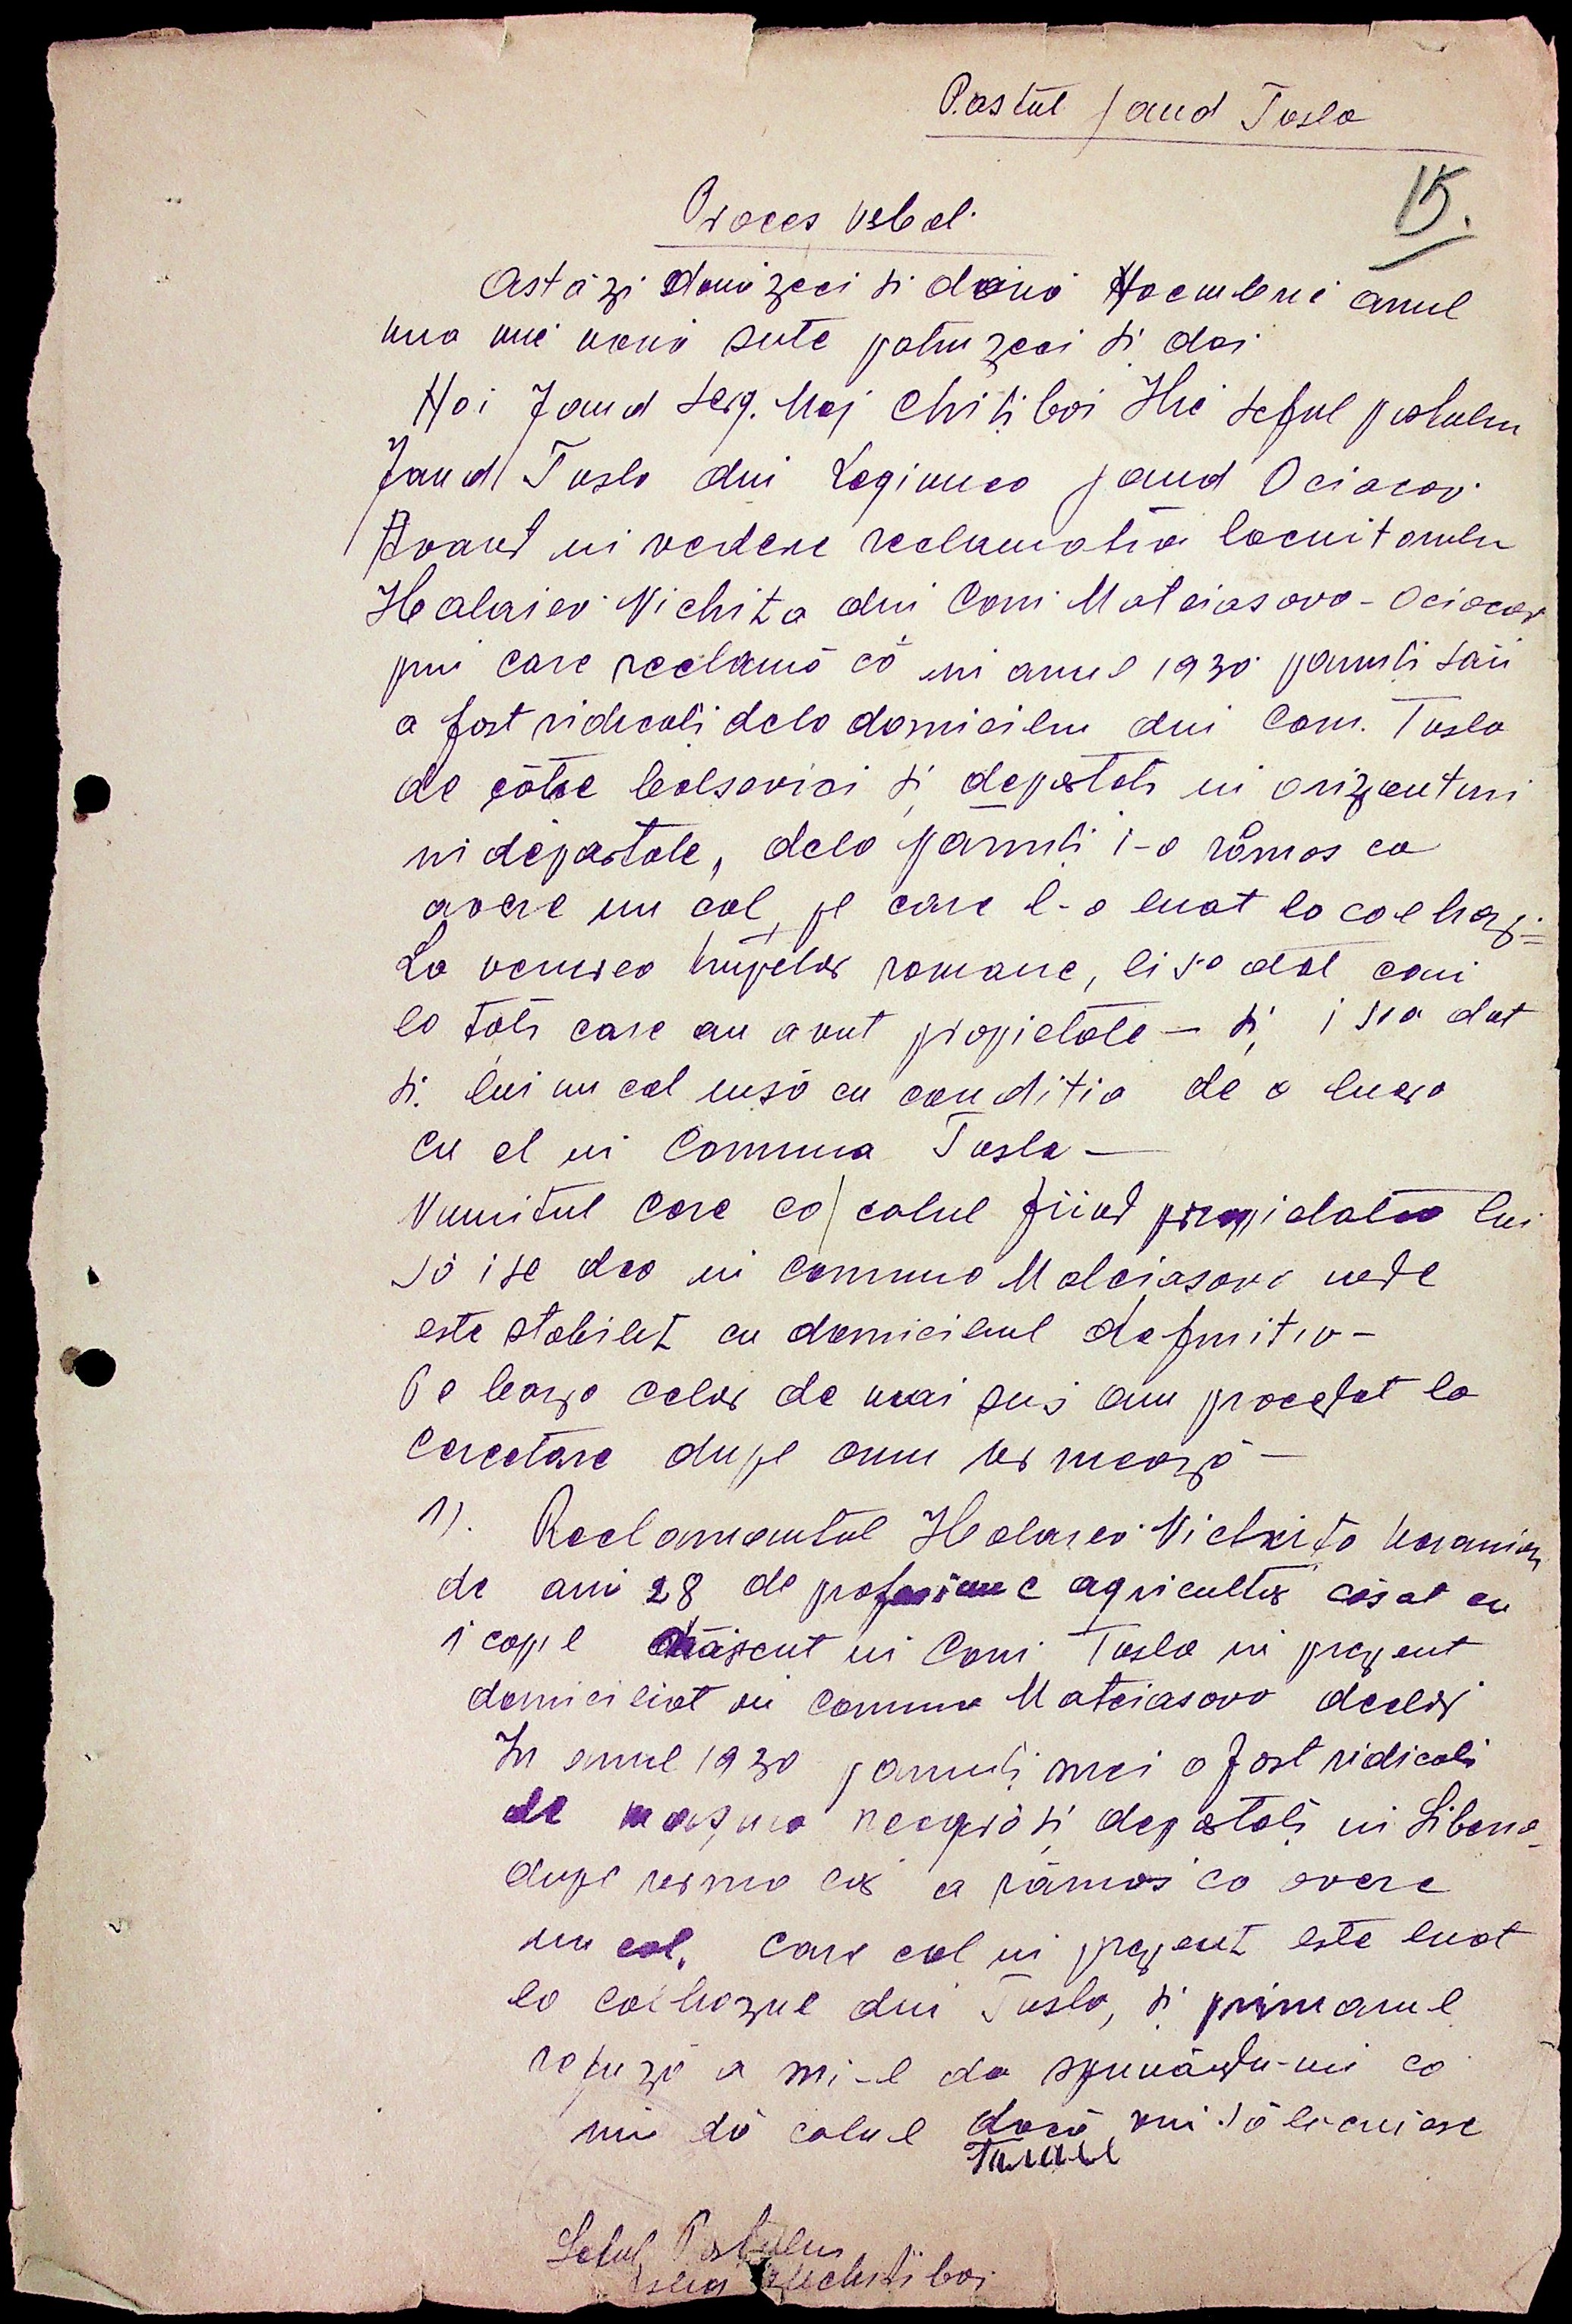 Postul Jand Tuslo
15.
Proces vebal
Astăzi douăzeci și două Noembrie anul
una mie nouă sute patruzeci și doi
Noi Jand Serg. Maj Chițiboi Ilie șeful postului
Jand Tuslo din Legiunea jand Ociacov
Avand in vedere reclamatia locuitorului
Halaiev Nichita din Com Mateiasovo - Ociacov
prin care reclamă că in anul 1930 parinți săi
a fost ridicati dela domiciliu din Com. Tuslo
de cătee bolsevici și deportati in orizonturi
nideportate, dela părinți i-a rămas ca
avere un cal, pe care l-a luat la colhoz=
La venirea trupelor romane, li s-a dat cai
la toti care au avut propietate - și i s-a dat
și lui un cal insă cu conditia de a lucra
cu el in Comuna Tuslo -
Numitul cere ca calul fiind propietatea lui
să i se dea in comuna Mateiasovo unde
este stabilit cu domiciliul definitiv -
Pe baza celor de mai sus am procedat la
cercetare dupe cum urmează -
1). Reclamantul Halaiev Nichita ucrainian
de ani 28 de profesiune agricultor căsat cu
1 copil născut in Com Tuslo in prezent
domiciliat in comuna Mateiasovo declar
In anul 1930 parinți mei a fost ridicati
de mașina neagră și deportați in Siberia
dupe urma lor a rămas ca avere
un cal, care cal in prezent este luat
la colhozul din Tuslo, și primarul
refuză a mi-l da spunăndu-mi ca
mi dă calul dacă vin să locuiesc
Seful Postului
Chițiboi